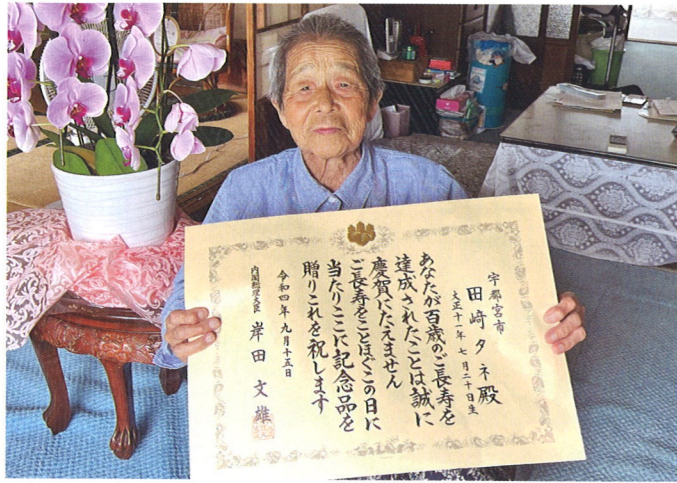 宇都宮市
田崎タネ殿
大正十一年七月二十日生
あなたが百歳のご長寿を
達成されたことは誠に
慶賀にたえません
ご長寿をことほぐこの日に
当たりここに記念品を
贈りこれを祝します
令和四年九月十五日
内閣総理大臣 岸田文雄